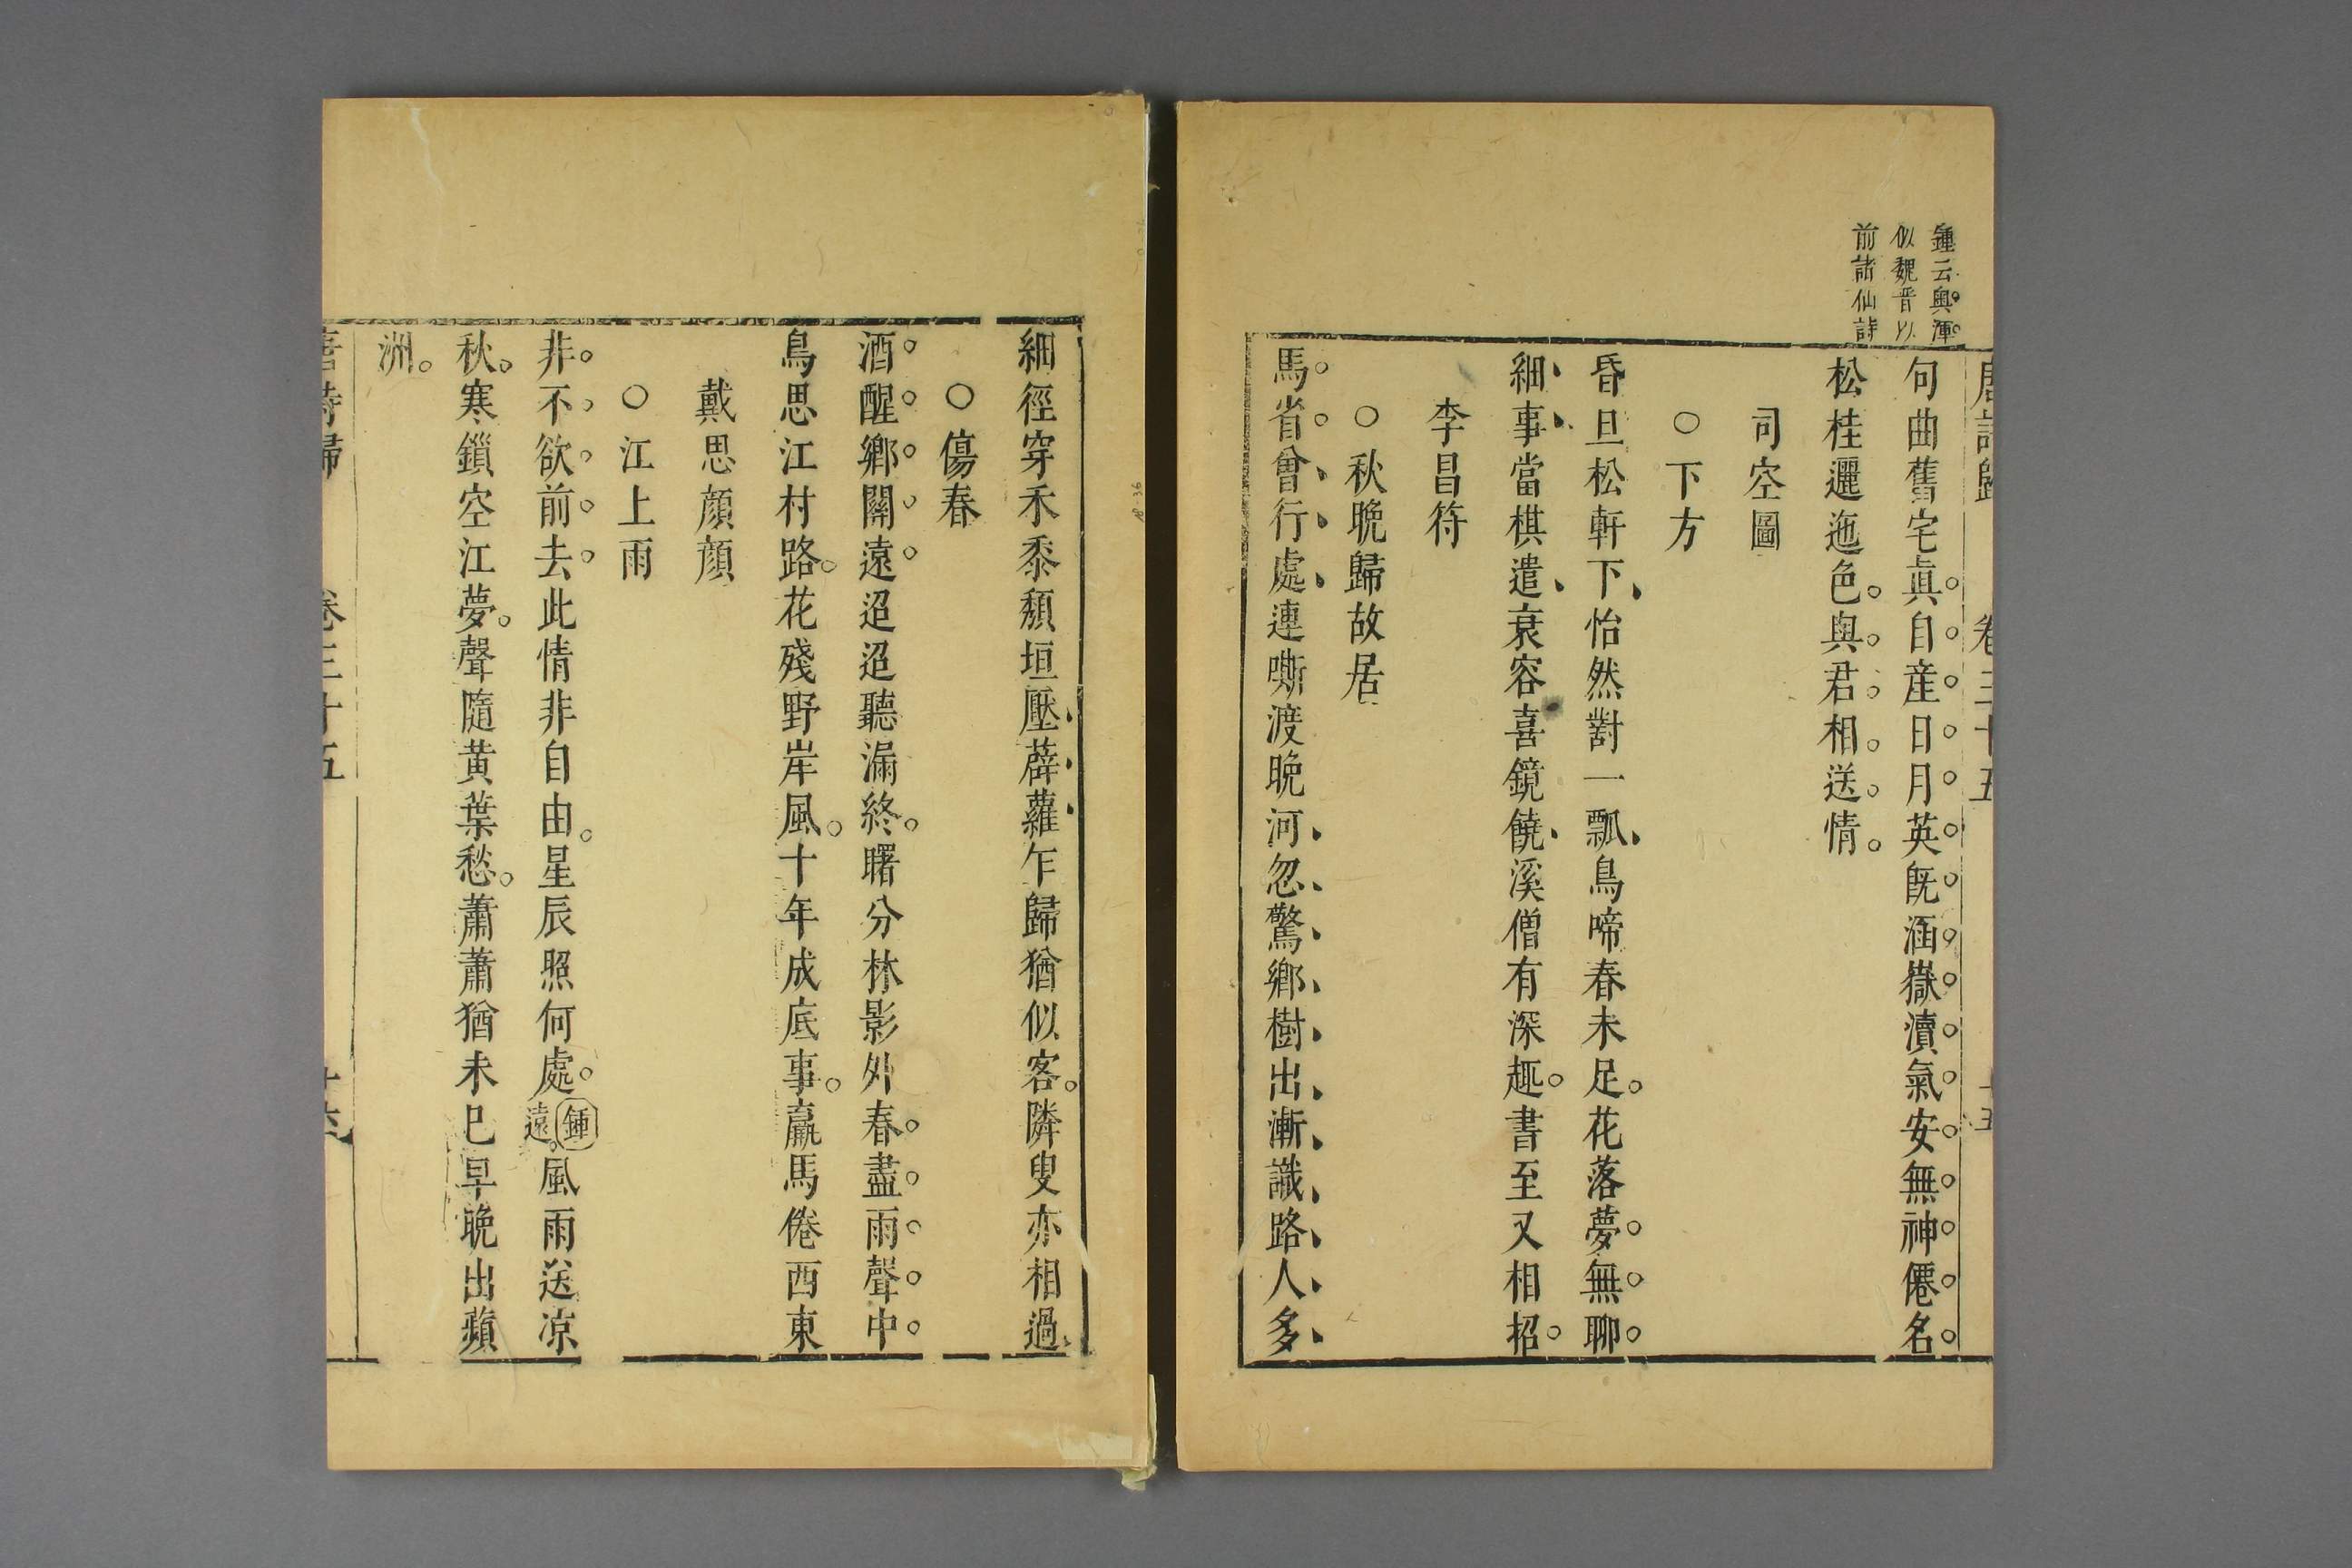 唐詩歸 卷三十五 十五
鍾云奥渾
似魏晋以
前諸仙詩
句曲舊宅眞自産日月英旣涵嶽瀆氣安無神僊名
松桂邐迤色與君相送情
司空圖
○下方
昏旦松軒下怡然對一瓢鳥啼春未足花落夢無聊
細事當棋遣衰容喜鏡饒溪僧有深趣書至又相招
李昌符
○秋晚歸故居
馬省曾行處連嘶渡晚河忽驚鄉樹出漸識路人多
細徑穿禾黍頹垣壓薜蘿乍歸猶似客隣叟亦相過
○傷春
酒醒鄉關遠迢迢聽漏終曙分林影外春盡雨聲中
鳥思江村路花殘野岸風十年成底事羸馬倦西東
戴思顔顔
○江上雨
非不欲前去此情非自由星辰照何處鍾遠風雨送凉
秋寒鎖空江夢聲隨黄葉愁蕭蕭猶未已早晚出蘋
洲
唐詩歸 卷三十五